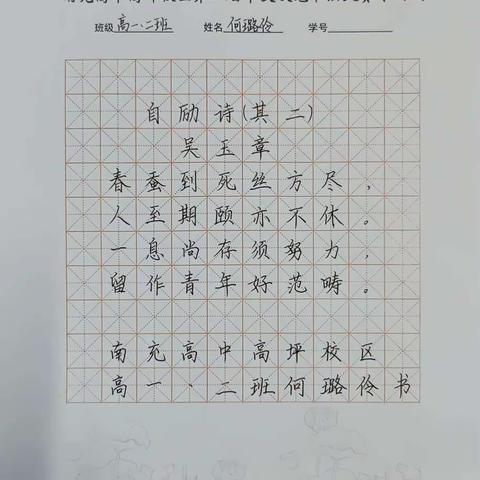 班级 高一、二班 姓名 何璐伶 学号
自励诗(其二)
吴玉章
春蚕到死丝方尽,
人至期颐亦不休。
一息尚存须努力,
留作青年好范畴。
南充高中高坪校区
高一、二班何璐伶书